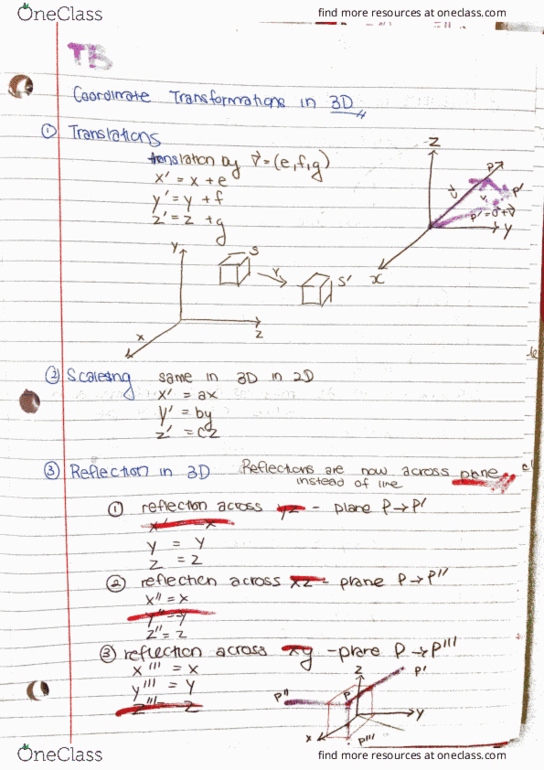 OneClass
find more resources at oneclass.com
TB
Coordinate Transformations in 3D
① Translations
translation by v = (e, f, g)
x' = x + e
y' = y + f
z' = z + g
z
P
P'
y
x
y
S
v
S'
x
z
② Scalesing same in 3D in 2D
x' = ax
y' = by
z' = cz
③ Reflection in 3D Reflections are now across plane
instead of line
① reflection across yz - plane P → P'
y = y
z = z
② reflection across xz - plane P → P''
x'' = x
y'' = -y
z'' = z
③ reflection across xy - plane P → P'''
x''' = x
y''' = y
z''' = -z
z
P'
P''
P
y
x
P'''
OneClass
find more resources at oneclass.com